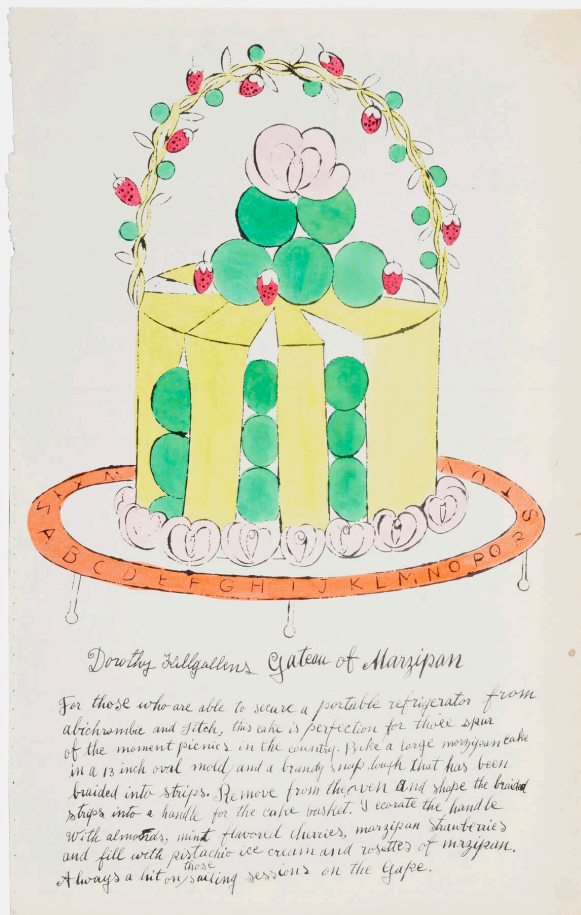 A B C D E F G H I J K L M N O P Q R S T U V
Dorothy Killgallens Gateau of Marzipan
For those who are able to secure a portable refrigerator from
abichrombie and Fitch, this cake is perfection for those spur
of the moment picnics in the country. Bake a large morzipan cake
in a 13 inch oval mold, and a brandy snap dough that has been
braided into strips. Remove from the oven and shape the braided
strips into a handle for the cake basket. Decorate the handle
with almonds, mint flavored cherries, marzipan strawberries
and fill with pistachio ice cream and rosettes of mrzipan.
Always a hit on those sailing sessions on the Cape.